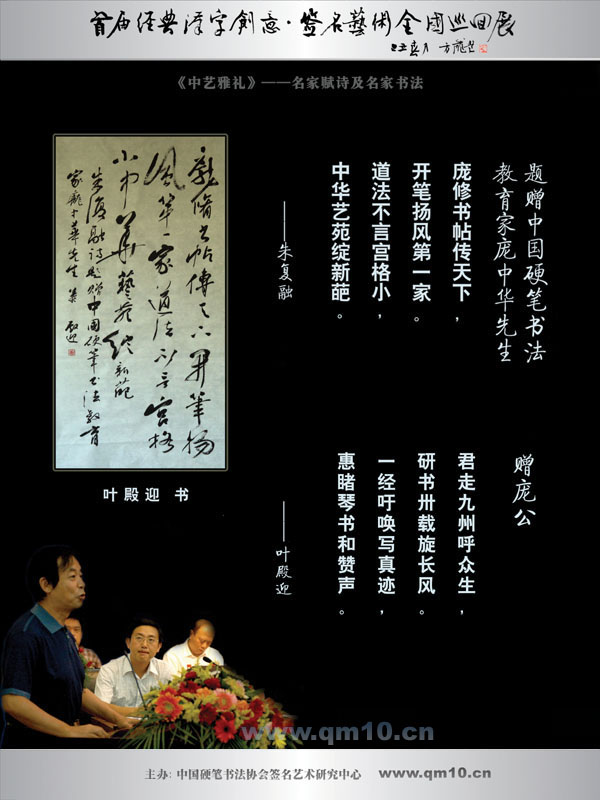 首届经典漢字創意·签名藝術全國巡回展
《中艺雅礼》——名家赋诗及名家书法
题赠中国硬笔书法
教育家庞中华先生
庞修书帖传天下，
开笔扬风第一家。
道法不言宫格小，
中华艺苑绽新葩。
——朱复融
龐脩书帖傳天下開筆揚
風第一家道法不言宫格
小中華藝苑绽新葩
朱復融诗题赠中国硬筆书法教育
家龐中華先生
叶殿迎 书
赠庞公
君走九州呼众生，
研书卅载旋长风。
一经吁唤写真迹，
惠睹琴书和赞声。
——叶殿迎
www.qm10.cn
主办：中国硬笔书法协会签名艺术研究中心 www.qm10.cn